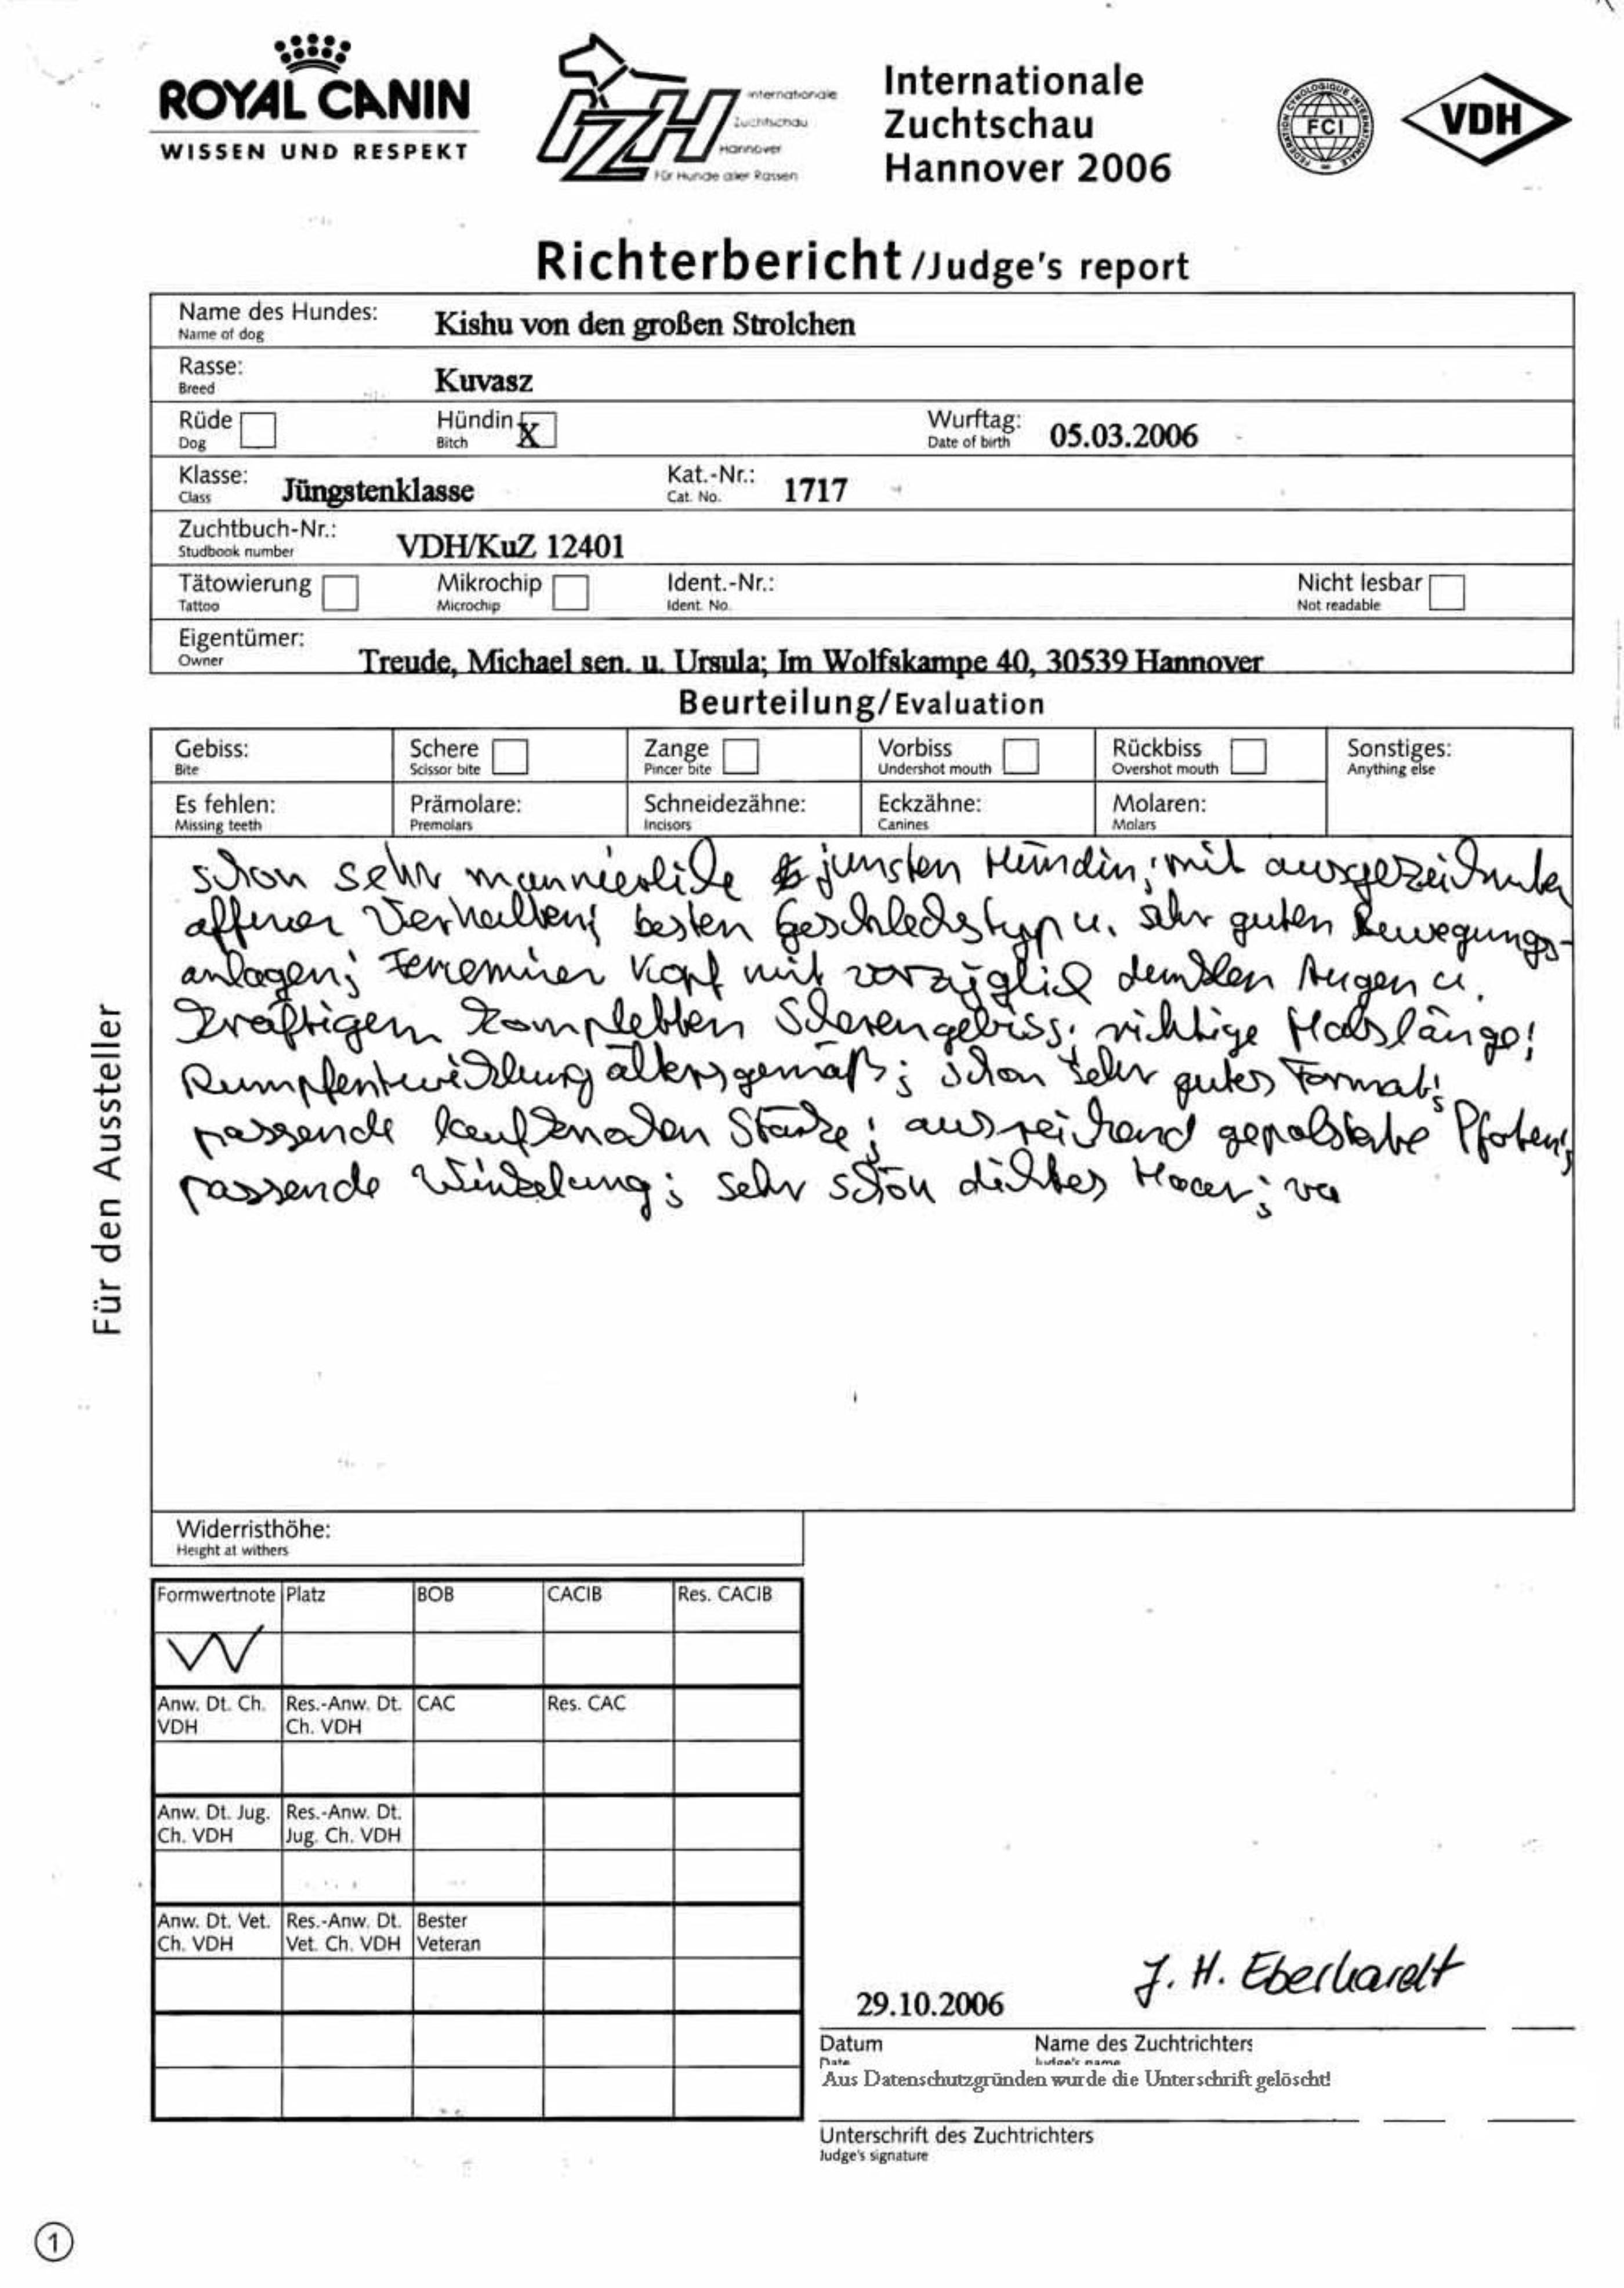 ROYAL CANIN
WISSEN UND RESPEKT
IZH
Internationale
Zuchtschau
Hannover
Für Hunde aller Rassen
Internationale
Zuchtschau
Hannover 2006
FEDERATION CYNOLOGIQUE INTERNATIONALE
FCI
VDH
Richterbericht/Judge's report
Name des Hundes: Kishu von den großen Strolchen
Name of dog
Rasse: Kuvasz
Breed
Rüde Hündin X Wurftag: 05.03.2006
Dog Bitch Date of birth
Klasse: Jüngstenklasse Kat.-Nr.: 1717
Class Cat. No.
Zuchtbuch-Nr.: VDH/KuZ 12401
Studbook number
Tätowierung Mikrochip Ident.-Nr.: Nicht lesbar
Tattoo Microchip Ident. No. Not readable
Eigentümer: Treude, Michael sen. u. Ursula; Im Wolfskampe 40, 30539 Hannover
Owner
Beurteilung/Evaluation
Gebiss: Schere Zange Vorbiss Rückbiss Sonstiges:
Bite Scissor bite Pincer bite Undershot mouth Overshot mouth Anything else
Es fehlen: Prämolare: Schneidezähne: Eckzähne: Molaren:
Missing teeth Premolars Incisors Canines Molars
schon sehr jüngsten Hündin; mit ausgezeichneter
offener Verhalten; besten Geschlechstyp u. sehr guten Bewegungs-
anlagen; Kopf mit vorzüglich dunklen Augen u.
kräftigem kompletten Scherengebiss; richtige Halslänge;
Rumpfentwicklung altersgemäß; schon sehr gutes Format;
passende Laufknochen Stärke; ausreichend gepolsterte Pfoten;
passende Winkelung; sehr schön dichtes Haar;
Für den Aussteller
Widerristhöhe:
Height at withers
Formwertnote Platz BOB CACIB Res. CACIB
Anw. Dt. Ch. Res.-Anw. Dt. CAC Res. CAC
VDH Ch. VDH
Anw. Dt. Jug. Res.-Anw. Dt.
Ch. VDH Jug. Ch. VDH
Anw. Dt. Vet. Res.-Anw. Dt. Bester
Ch. VDH Vet. Ch. VDH Veteran
29.10.2006 J. H. Eberhardt
Datum Name des Zuchtrichters
Date Judge's name
Aus Datenschutzgründen wurde die Unterschrift gelöscht!
Unterschrift des Zuchtrichters
Judge's signature
1